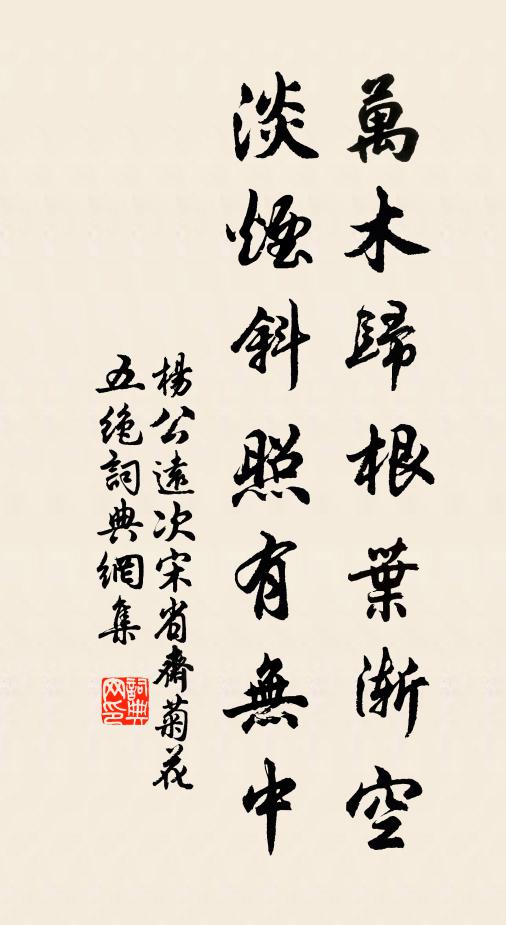 萬木歸根葉漸空
淡煙斜照有無中
楊公遠次宋省齋菊花
五絶詞典網集
詞典网印